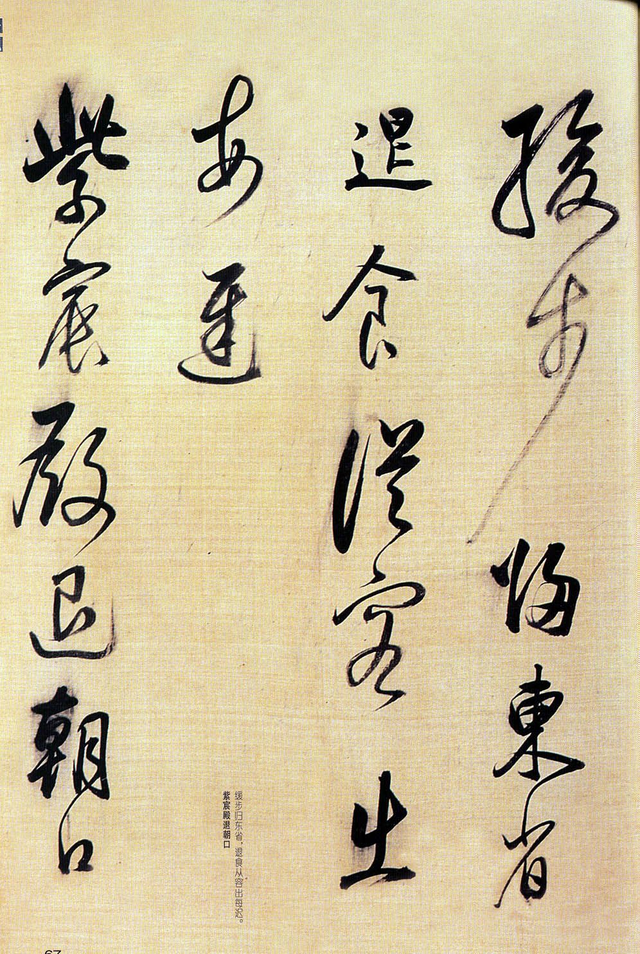 緩步歸東省
退食從容出
每遲
紫宸殿退朝口
缓步归东省，退食从容出每迟。
紫宸殿退朝口
67